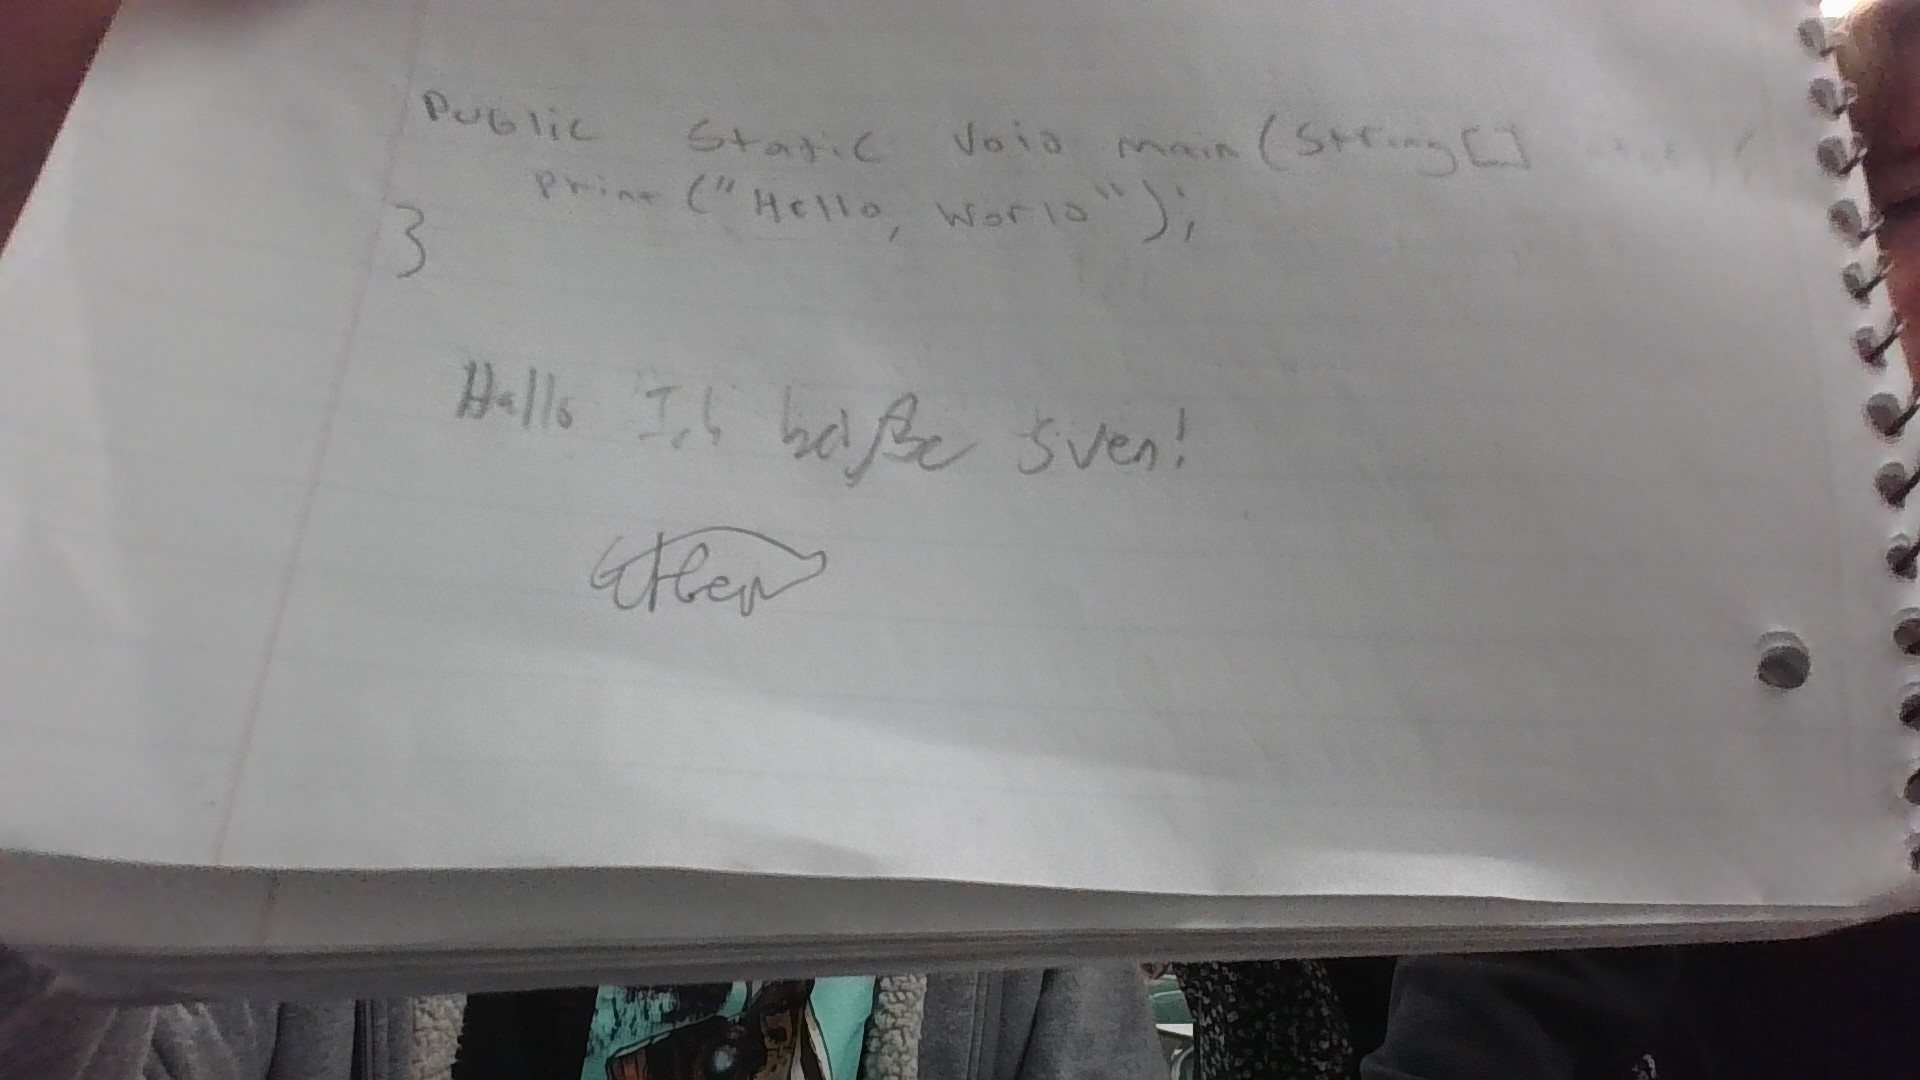 Public Static Void main(String[]
print("Hello, World");
}
Hallo Ich heiße Sven!